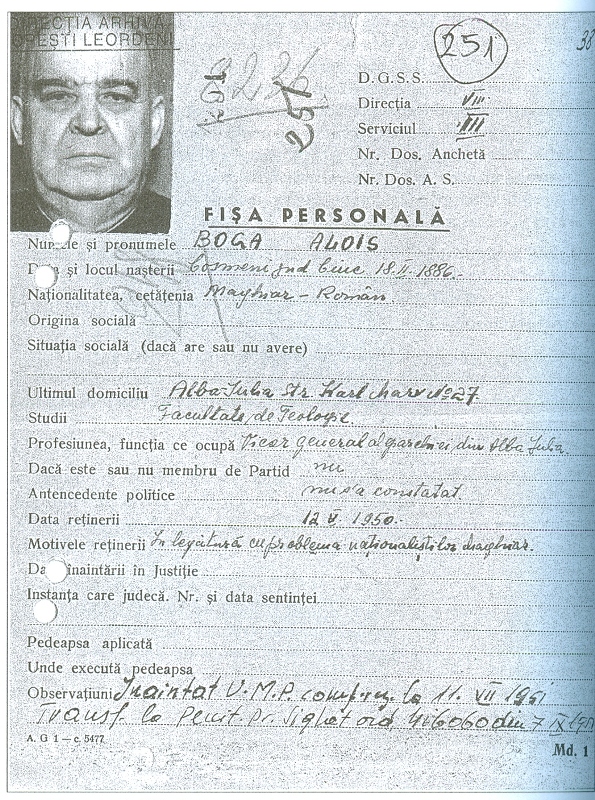 DIRECȚIA ARHIVĂ
ORESTI LEORDENI
9226
257
251
38
D.G.S.S.
Direcția VIII
Serviciul III
Nr. Dos. Anchetă
Nr. Dos. A. S.
FIȘA PERSONALĂ
Numele și pronumele BOGA ALOIS
și locul nașterii Cosmeni jud Ciuc 18.II.1886.
Naționalitatea, cetățenia Maghiar – Român
Origina socială
Situația socială (dacă are sau nu avere)
Ultimul domiciliu Alba Iulia Str. Karl Marx No 27
Studii Facultate de Teologie.
Profesiunea, funcția ce ocupă Vicar general al din Alba Iulia.
Dacă este sau nu membru de Partid nu
Antencedente politice nu s'a constatat
Data reținerii 12 V. 1950.
Motivele reținerii În legătură cu problema naționaliștilor maghiar.
înaintării în Justiție
Instanța care judecă. Nr. și data sentinței
Pedeapsa aplicată
Unde execută pedeapsa
Observațiuni Inaintat la 11. VII 1951
Transf. la Penit. Pr. Sighet ord din 7 IX
A. G 1 — c. 5477
Md. 1